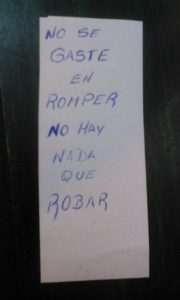 NO SE
GASTE
EN
ROMPER
NO HAY
NADA
QUE
ROBAR